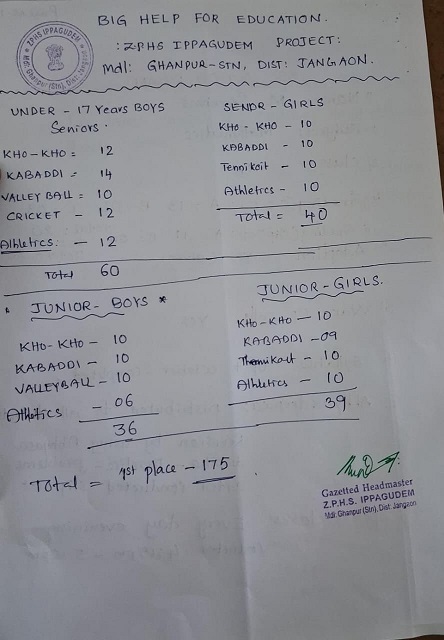 BIG HELP FOR EDUCATION.
: ZPHS IPPAGUDEM PROJECT:
Mdl: GHANPUR-STN, DIST: JANGAON.
Z.P.H.S IPPAGUDEM
Mdl: Ghanpur (Stn), Dist: Jangaon
UNDER - 17 Years BOYS
Seniors.
KHO-KHO = 12
KABADDI = 14
VALLEY BALL = 10
CRICKET - 12
Athletics: - 12
Total 60
SENOR - GIRLS
KHO-KHO - 10
KABADDI - 10
Tennikoit - 10
Athletics - 10
Total = 40
* JUNIOR - BOYS *
KHO-KHO - 10
KABADDI - 10
VALLEYBALL - 10
Athletics - 06
36
JUNIOR - GIRLS.
KHO-KHO - 10
KABADDI - 09
Thennikoit - 10
Athletics - 10
39
Total = 1st place - 175
Gazetted Headmaster
Z.P.H.S. IPPAGUDEM
Mdl: Ghanpur (Stn), Dist: Jangaon